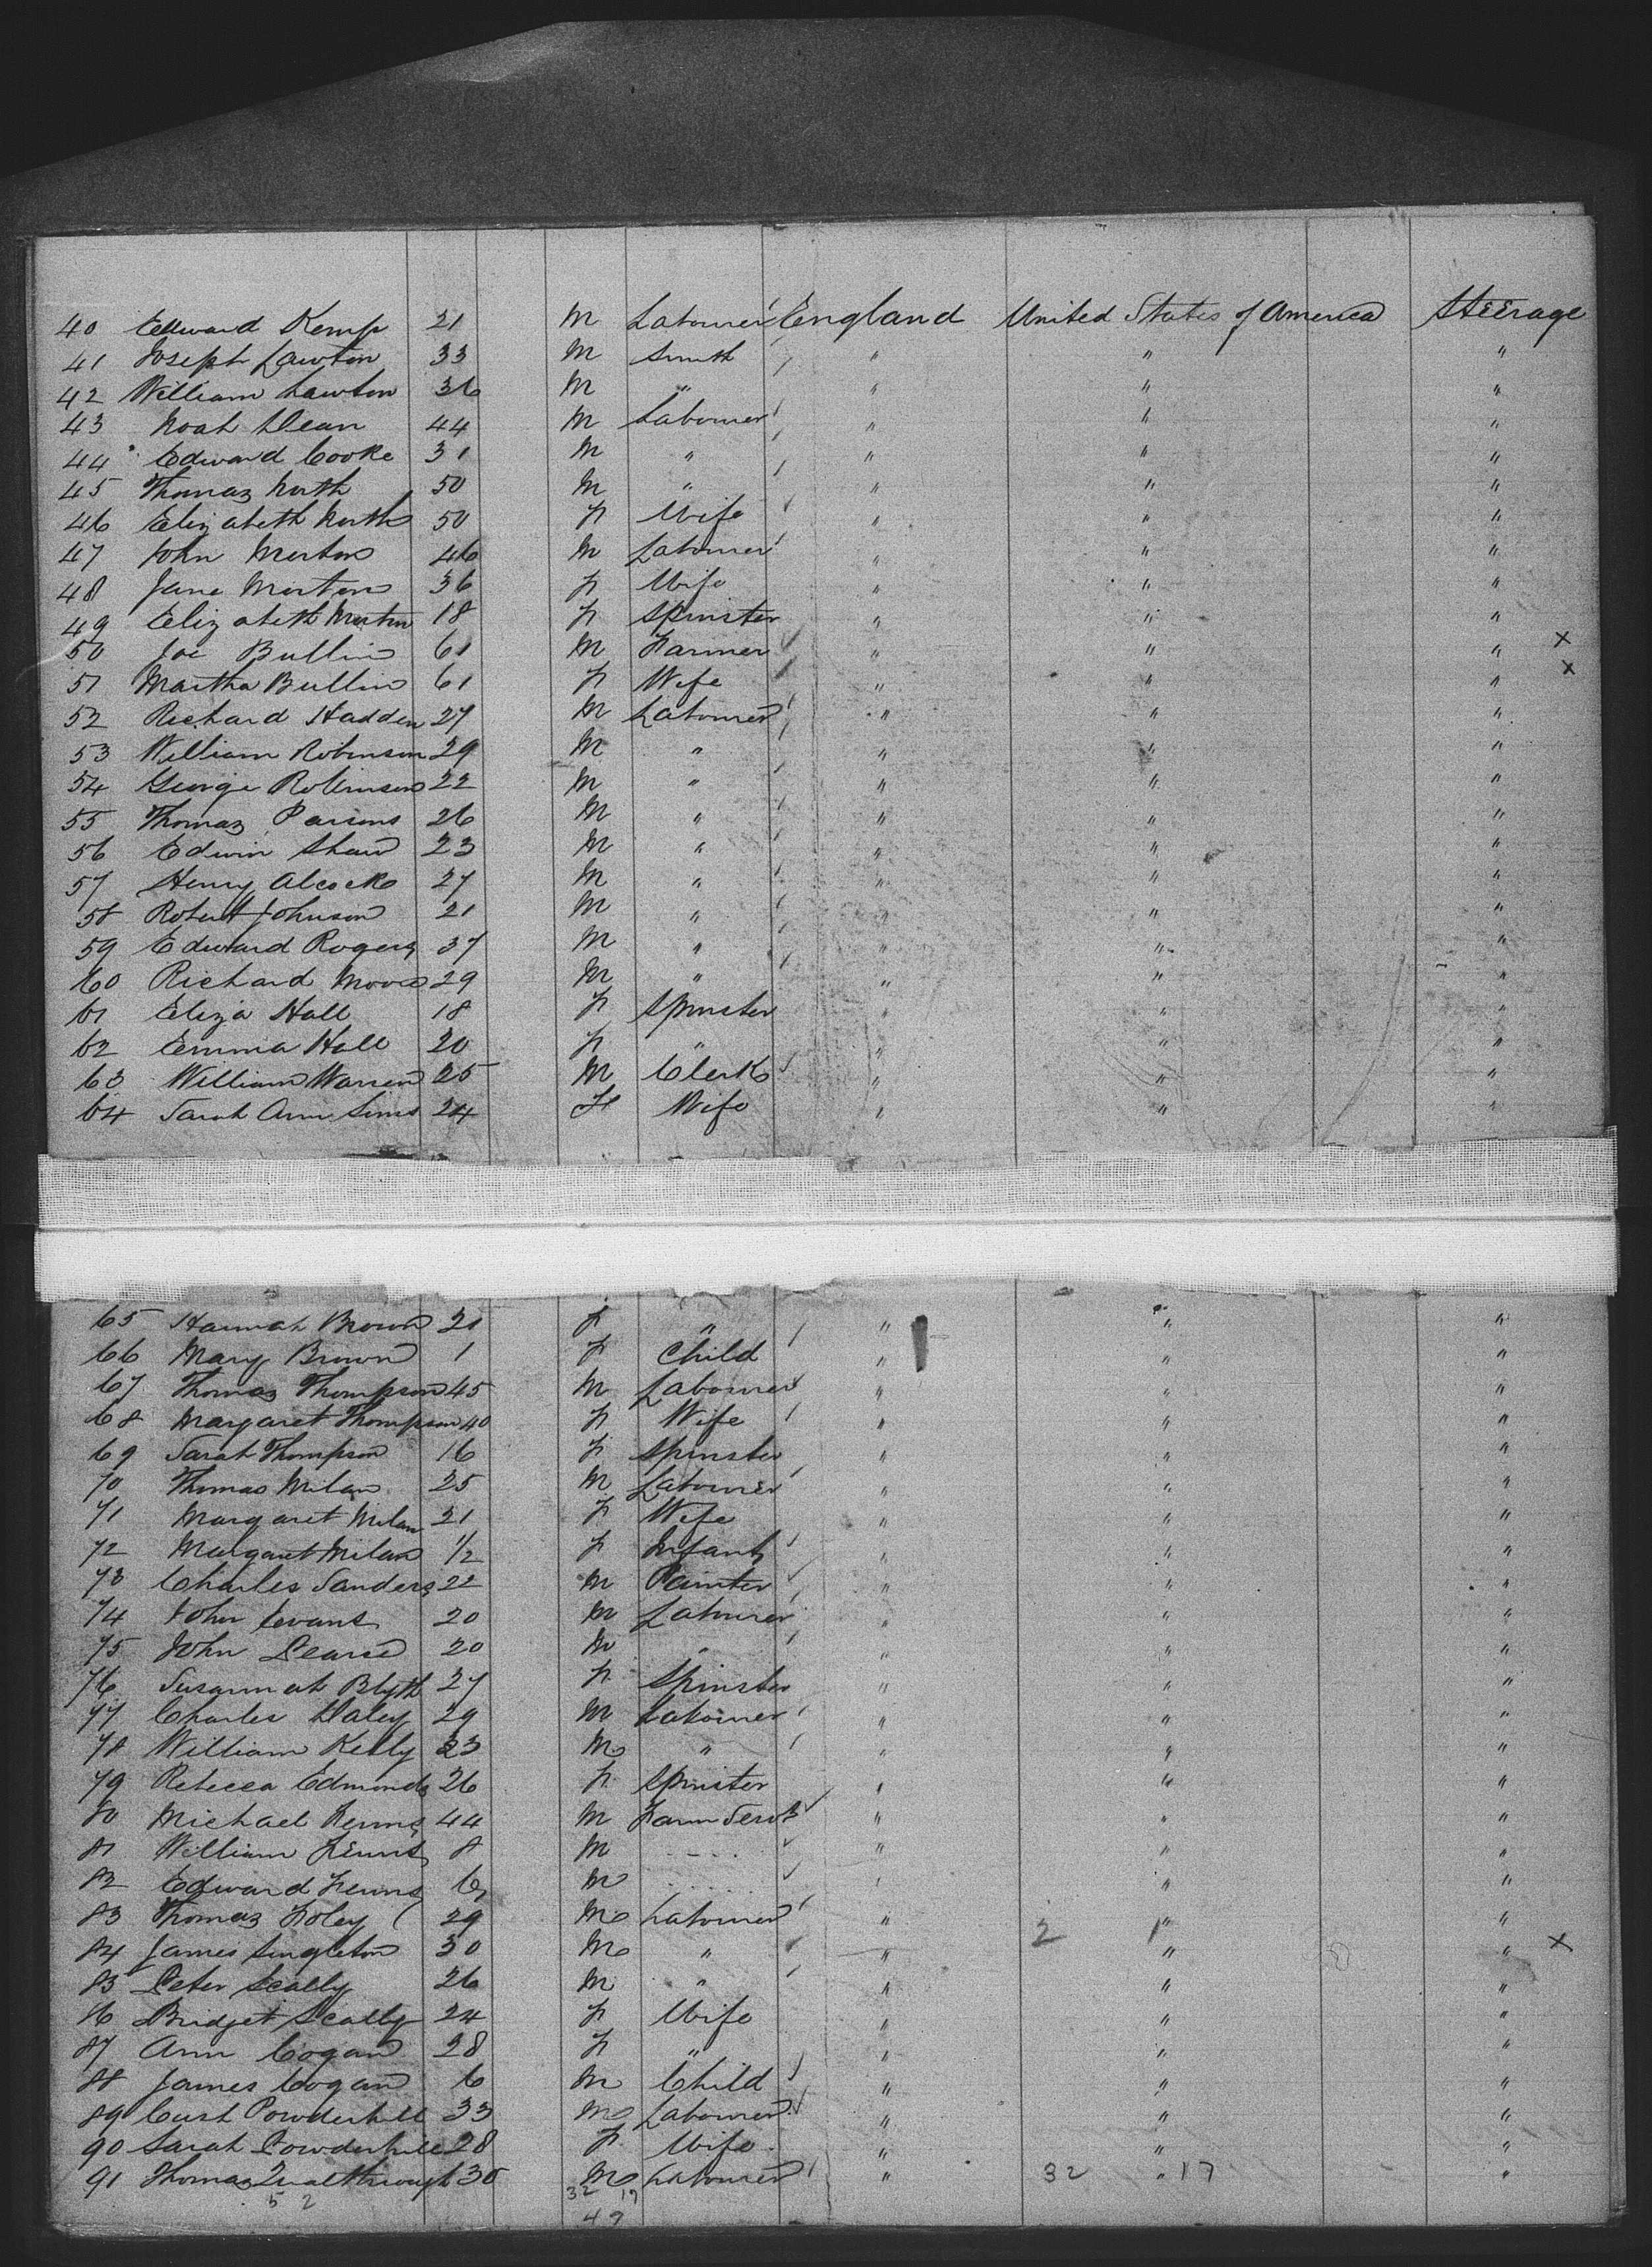 40 Edward Kemp 21 M Labourer England United States of America Steerage
41 Joseph Lawton 33 M Smith " " "
42 William Lawton 36 M " " " "
43 Noah Dean 44 M Labourer " " "
44 Edward Cooke 31 M " " " "
45 Thomas North 50 M " " " "
46 Elizabeth North 50 F Wife " " "
47 John Morton 46 M Labourer " " "
48 Jane Morton 36 F Wife " " "
49 Elizabeth Morton 18 F Spinster " " "
50 Joe Bullin 61 M Farmer " " " x
51 Martha Bullin 61 F Wife " " " x
52 Richard Hadden 27 M Labourer " " "
53 William Robinson 29 M " " " "
54 George Robinson 22 M " " " "
55 Thomas Parsons 26 M " " " "
56 Edwin Shaw 23 M " " " "
57 Henry Alcock 27 M " " " "
58 Robert Johnson 21 M " " " "
59 Edward Rogers 37 M " " " "
60 Richard Moore 29 M " " " "
61 Eliza Hall 18 F Spinster " " "
62 Emma Hall 20 F " " " "
63 William Warren 25 M Clerk " " "
64 Sarah Ann Sims 24 F Wife " " "
65 Hannah Brown 21 F " " " "
66 Mary Brown 1 F Child " " "
67 Thomas Thompson 45 M Labourer " " "
68 Margaret Thompson 40 F Wife " " "
69 Sarah Thompson 16 F Spinster " " "
70 Thomas Milan 25 M Labourer " " "
71 Margaret Milan 21 F Wife " " "
72 Margaret Milan 1/2 F Infant " " "
73 Charles Sanders 22 M Painter " " "
74 John Evans 20 M Labourer " " "
75 John Pearse 20 M " " " "
76 Susannah Blyth 27 F Spinster " " "
77 Charles Daley 29 M Labourer " " "
78 William Kelly 23 M " " " "
79 Rebecca Edmonds 26 F Spinster " " "
80 Michael 44 M Farm Servt " " "
81 William 8 M " " "
82 Edward 6 M " " "
83 Thomas Foley 29 M Labourer " 2 " "
84 James Singleton 30 M " " " " x
85 Peter Scally 26 M " " " "
86 Bridget Scally 24 F Wife " " "
87 Ann Cogan 28 F " " " "
88 James Cogan 6 M Child " " "
89 Powderhill 33 M Labourer " " "
90 Sarah Powderhill 28 F Wife " " "
91 Thomas Qualthrough 30 M Labourer " 32 " 17 "
5 2 32 17
49